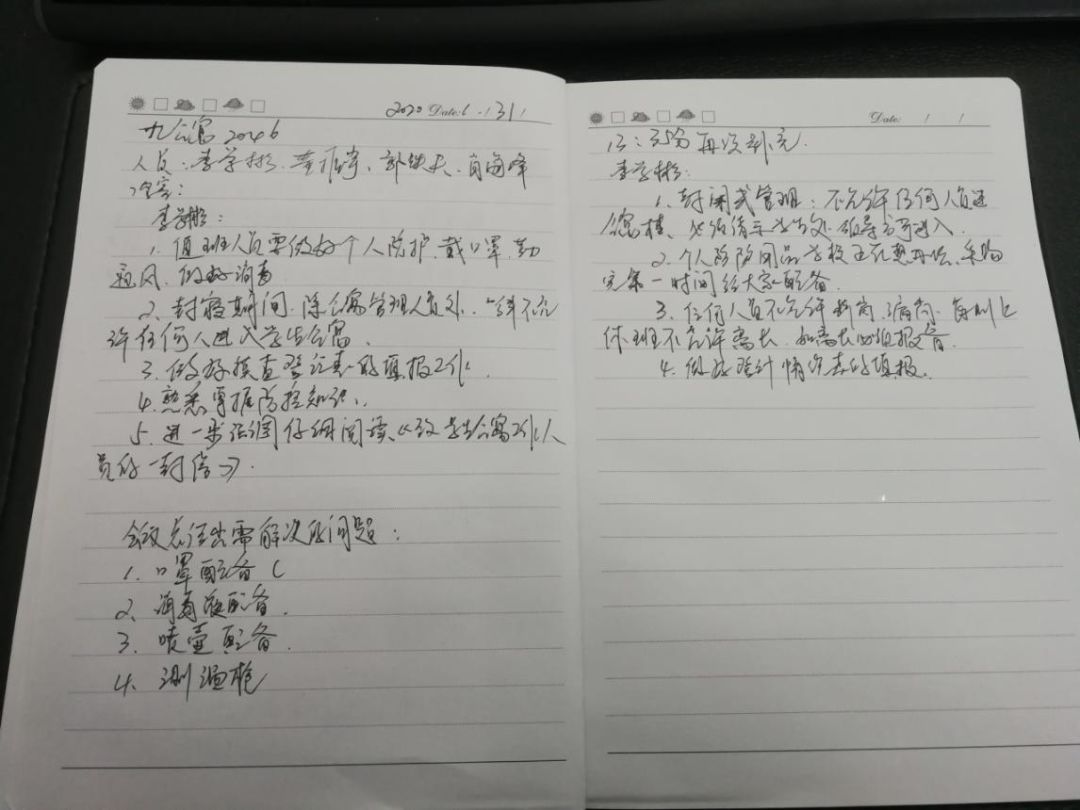 2020 Date: 1 / 31 /
九公寓 2046
人员：李学彬、郭铁夫、肖海峰
内容：
李学彬：
1. 值班人员要做好个人防护，戴口罩，勤
通风，做好消毒
2. 封寝期间，除公寓管理人员外，一律不允
许任何人进入学生公寓.
3. 做好摸查登记表的填报工作.
4. 熟悉掌握防控知识.
5. 进一步强调仔细阅读《致学生公寓工作人
员的一封信》.
会议总结出需解决的问题：
1. 口罩配备
2. 消毒液配备.
3. 喷壶配备.
4. 测温枪
Date: / /
再次补充.
李学彬：
1. 封闭式管理：不允许任何人员进
公寓楼，必须请示学生处领导方可进入.
2. 个人防护用品学校正在采购
完第一时间给大家配备.
3. 任何人员不允许串岗、漏岗、
休班不允许离长，如离长必须报备.
4. 做好统计情况表的填报.